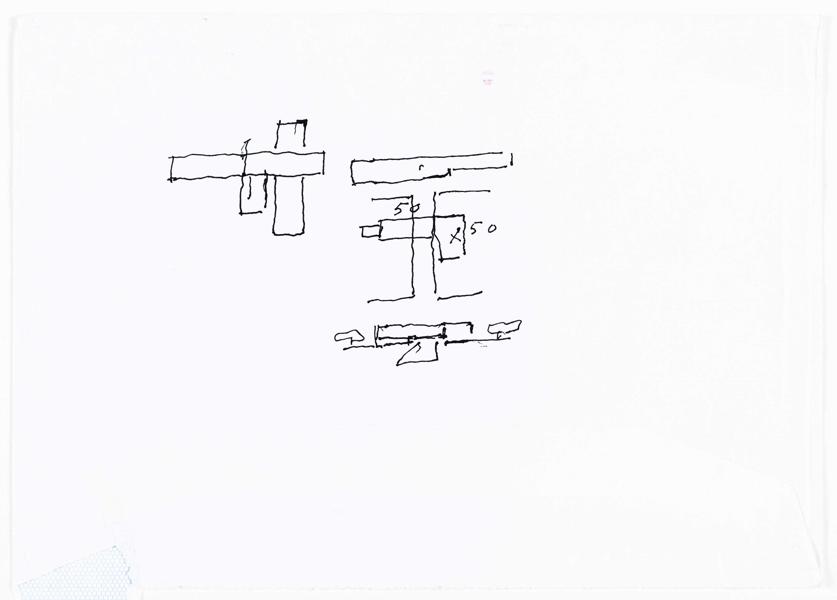 50
x 50